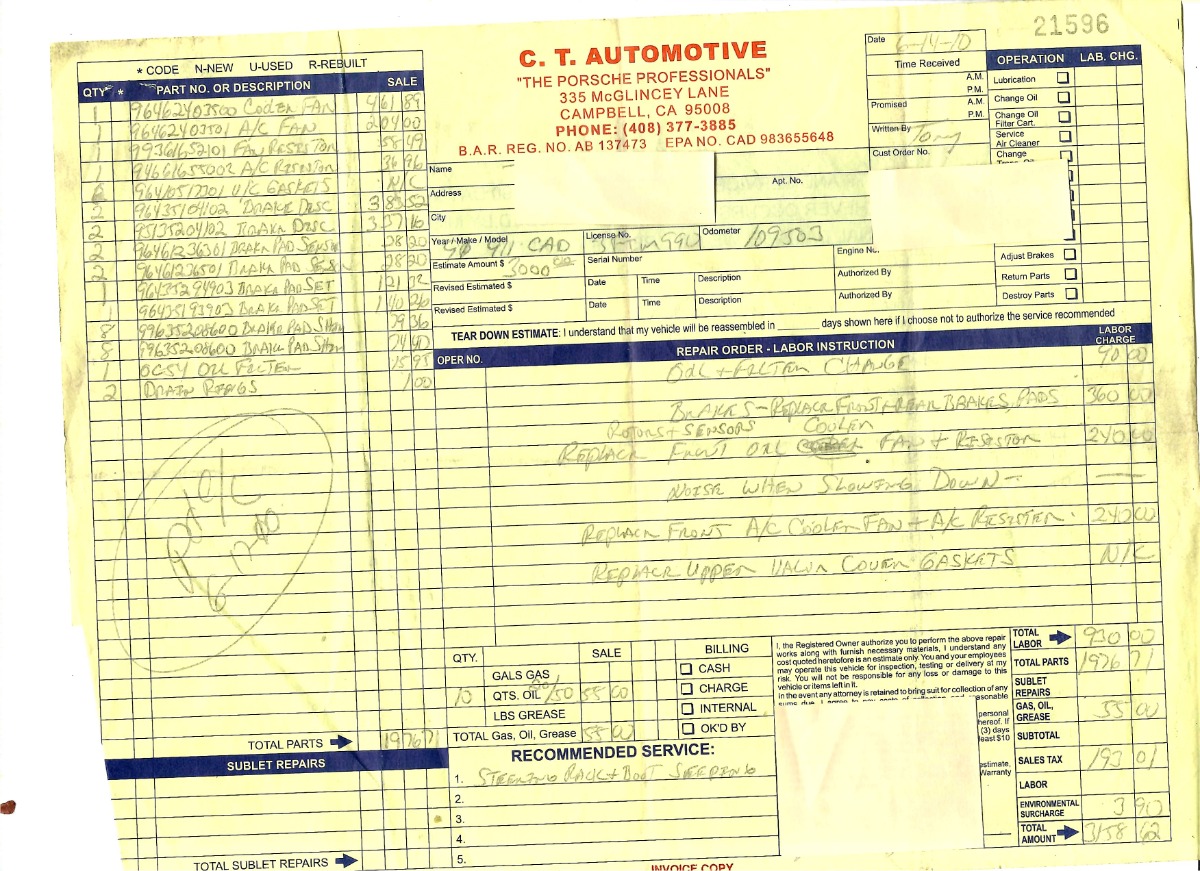 21596
* CODE N-NEW U-USED R-REBUILT
QTY * PART NO. OR DESCRIPTION SALE
1 96462403500 COOLER FAN 461 89
1 96462403501 A/C FAN 204 00
1 99361652101 FAN RESISTOR 58 49
1 94661655002 A/C RESISTOR 36 96
96410517701 U/C GASKETS N/C
2 96435104102 BRAKE DISC 383 52
2 95135204102 BRAKE DISC 337 16
2 96461236301 BRAKE PAD SENSR 28 20
2 96461236501 BRAKE PAD SENS 28 20
1 96435294903 BRAKE PAD SET 121 32
1 96435193903 BRAKE PAD SET 140 26
8 99635208600 BRAKE PAD SHIM 79 36
8 99635208600 BRAKE PAD SHIM
1 OC54 OIL FILTER 15 95
2 DRAIN RINGS 1 00
TOTAL PARTS 1976 71
SUBLET REPAIRS
TOTAL SUBLET REPAIRS
C. T. AUTOMOTIVE
"THE PORSCHE PROFESSIONALS"
335 McGLINCEY LANE
CAMPBELL, CA 95008
PHONE: (408) 377-3885
B.A.R. REG. NO. AB 137473 EPA NO. CAD 983655648
Date 6-14-10
Time Received
A.M.
P.M.
Promised A.M.
P.M.
Written By Tony
Cust Order No.
OPERATION LAB. CHG.
Lubrication
Change Oil
Change Oil
Filter Cart.
Service
Air Cleaner
Change
Adjust Brakes
Return Parts
Destroy Parts
Name
Address Apt. No.
City
Year / Make / Model 90 911 CAB
License No.
Odometer 109503
Estimate Amount $ 3000
Serial Number
Engine No.
Revised Estimated $ Date Time Description Authorized By
Revised Estimated $ Date Time Description Authorized By
TEAR DOWN ESTIMATE: I understand that my vehicle will be reassembled in ______ days shown here if I choose not to authorize the service recommended
OPER NO. REPAIR ORDER - LABOR INSTRUCTION LABOR CHARGE
OIL + FILTER CHANGE 90 00
BRAKES - REPLACE FRONT + REAR BRAKES, PADS 360 00
ROTORS + SENSORS COOLER
REPLACE FRONT OIL FAN + RESISTOR 240 00
NOISE WHEN SLOWING DOWN -
REPLACE FRONT A/C COOLER FAN + A/C RESISTER 240 00
REPLACE UPPER VALVE COVER GASKETS N/C
QTY. SALE
GALS GAS
10 QTS. OIL 20/50 55 00
LBS GREASE
TOTAL Gas, Oil, Grease 55 00
BILLING
CASH
CHARGE
INTERNAL
OK'D BY
I, the Registered Owner authorize you to perform the above repair
works along with furnish necessary materials, I understand any
cost quoted heretofore is an estimate only. You and your employees
may operate this vehicle for inspection, testing or delivery at my
risk. You will not be responsible for any loss or damage to this
vehicle or items left in it.
in the event any attorney is retained to bring suit for collection of any
personal
hereof. If
(3) days
least $10
estimate.
Warranty
TOTAL LABOR 930 00
TOTAL PARTS 1976 71
SUBLET REPAIRS
GAS, OIL, GREASE 55 00
SUBTOTAL
SALES TAX 193 01
LABOR
ENVIRONMENTAL SURCHARGE 3 90
TOTAL AMOUNT 3158 62
RECOMMENDED SERVICE:
1. STEERING RACK + BOOT SEEPING
2.
3.
4.
5.
INVOICE COPY